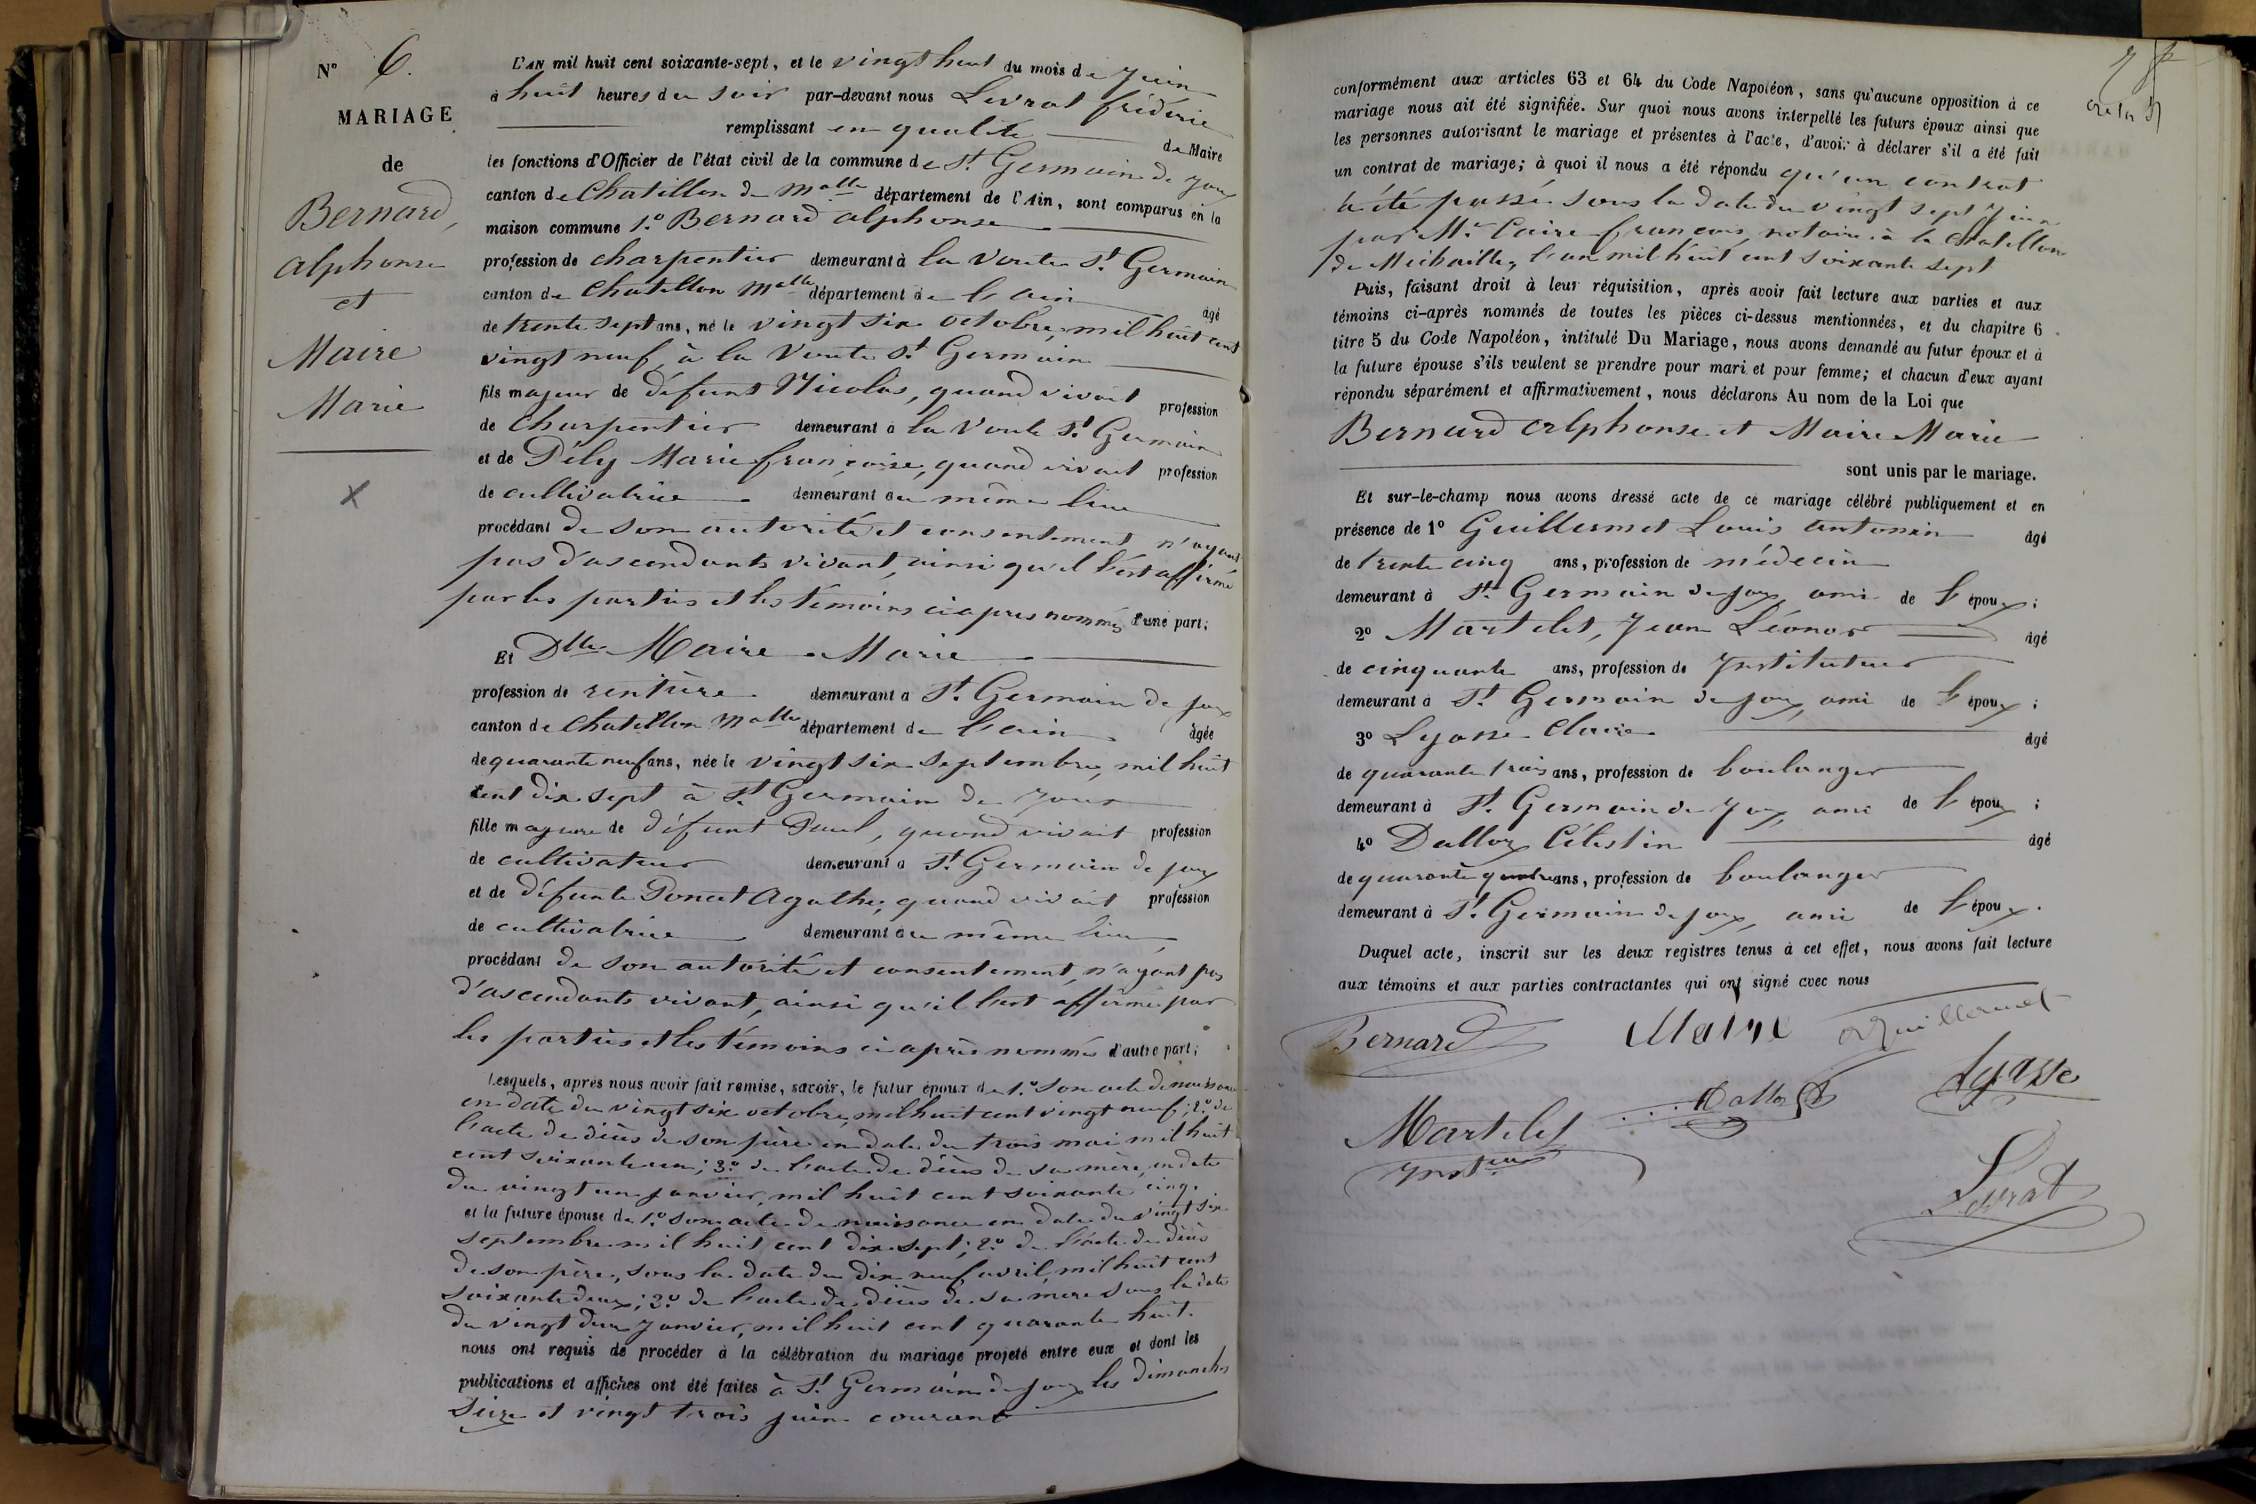 N° 6.
MARIAGE
de
Bernard,
alphonse
et
Maire
Marie
L'AN mil huit cent soixante-sept, et le vingt huit du mois de Juin
à huit heures du soir par-devant nous Levrat frédéric
remplissant en qualité de Maire
les fonctions d'Officier de l'état civil de la commune de St. Germain de Joux
canton de Chatillon de Malle département de l'Ain, sont comparus en la
maison commune 1.° Bernard alphonse
profession de charpentier demeurant à la Voute St. Germain
canton de Chatillon Malle département de l'ain âgé
de trente sept ans, né le vingt six octobre, mil huit cent
vingt neuf, à la Voute St. Germain
fils majeur de défunt Nicolas, quand vivait profession
de charpentier demeurant à la Voute St. Germain
et de Pély Marie françoise, quand vivait profession
de cultivatrice demeurant au même lieu
procédant de son autorité et consentement n'ayant
pas d'ascendants vivant, ainsi qu'il l'est affirmé
par les parties et les témoins ci après nommés d'une part;
Et Dlle Maire Marie
profession de rentière demeurant à St. Germain de Joux
canton de Chatillon Malle département de l'ain âgée
de quarante neuf ans, née le vingt six septembre, mil huit
cent dix sept à St. Germain de Joux
fille majeure de défunt Paul, quand vivait profession
de cultivateur demeurant à St. Germain de Joux
et de défunte Poncet Agathe, quand vivait profession
de cultivatrice demeurant au même lieu,
procédant de son autorité et consentement, n'ayant pas
d'ascendants vivant, ainsi qu'il l'est affirmé par
les parties et les témoins ci après nommés d'autre part;
Lesquels, après nous avoir fait remise, savoir, le futur époux de 1.° Son acte de naissance
en date du vingt six octobre, mil huit cent vingt neuf; 2.° de
l'acte de décès de son père en date du trois mai mil huit
cent soixante un; 3.° de l'acte de décès de sa mère, en date
du vingt un janvier, mil huit cent soixante cinq.
et la future épouse de 1.° son acte de naissance en date du vingt six
septembre mil huit cent dix sept; 2.° de l'acte de décès
de son père, sous la date du dix neuf avril, mil huit cent
soixante deux; 3.° de l'acte de décès de sa mère sous la date
du vingt deux Janvier, mil huit cent quarante huit.
nous ont requis de procéder à la célébration du mariage projeté entre eux et dont les
publications et affiches ont été faites à St. Germain de Joux les dimanches
seize et vingt trois juin courant
conformément aux articles 63 et 64 du Code Napoléon, sans qu'aucune opposition à ce
mariage nous ait été signifiée. Sur quoi nous avons interpellé les futurs époux ainsi que
les personnes autorisant le mariage et présentes à l'acte, d'avoir à déclarer s'il a été fait
un contrat de mariage; à quoi il nous a été répondu qu'un contrat
a été passé sous la date du vingt sept Juin
par Me. Caire françois, notaire à la Chatillon
de Michaille, l'an mil huit cent soixante sept
Puis, faisant droit à leur réquisition, après avoir fait lecture aux parties et aux
témoins ci-après nommés de toutes les pièces ci-dessus mentionnées, et du chapitre 6
titre 5 du Code Napoléon, intitulé Du Mariage, nous avons demandé au futur époux et à
la future épouse s'ils veulent se prendre pour mari et pour femme; et chacun d'eux ayant
répondu séparément et affirmativement, nous déclarons Au nom de la Loi que
Bernard Alphonse et Maire Marie
sont unis par le mariage.
Et sur-le-champ nous avons dressé acte de ce mariage célébré publiquement et en
présence de 1° Guillermet Louis antonin âgé
de trente cinq ans, profession de médecin
demeurant à St. Germain de Joux, ami de l'époux;
2° Martelet, Jean Léonor âgé
de cinquante ans, profession de Instituteur
demeurant à St. Germain de Joux, ami de l'époux;
3° Lyasse Claire âgé
de quarante trois ans, profession de boulanger
demeurant à St. Germain de Joux, ami de l'époux;
4° Dalloz Célestin âgé
de quarante quatre ans, profession de boulanger
demeurant à St. Germain de Joux, ami de l'époux.
Duquel acte, inscrit sur les deux registres tenus à cet effet, nous avons fait lecture
aux témoins et aux parties contractantes qui ont signé avec nous
Bernard Maire Guillermet
Martelet Dalloz Lyasse
Insteur
Levrat